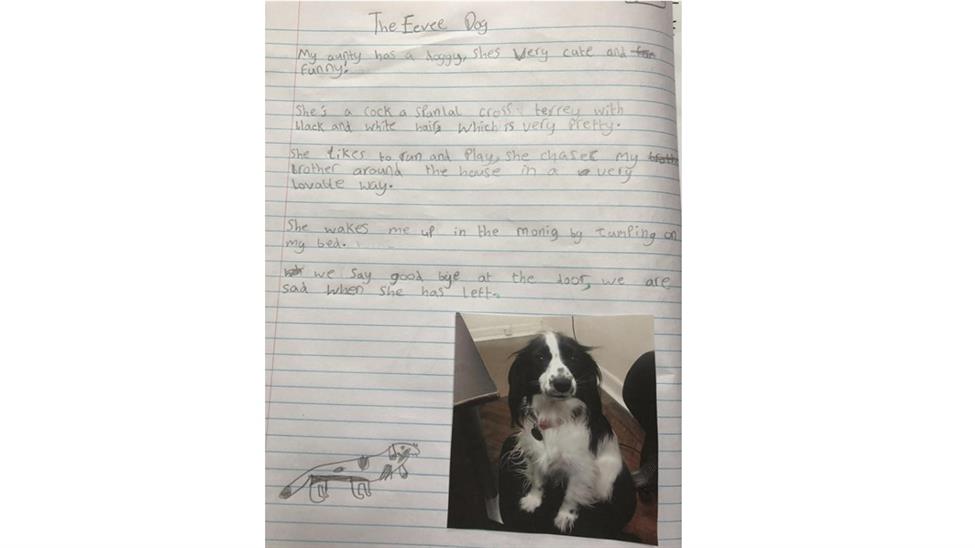 The Eevee Dog
My aunty has a doggy, shes very cute and
Funny!
She's a cock a spanlal cross terrey with
black and white hairs which is very Pretty.
She likes to run and Play, she chases my
brother around the house in a very
lovable way.
She wakes me up in the monig by Jumping on
my bed.
we say good bye at the door, we are
sad when she has left.